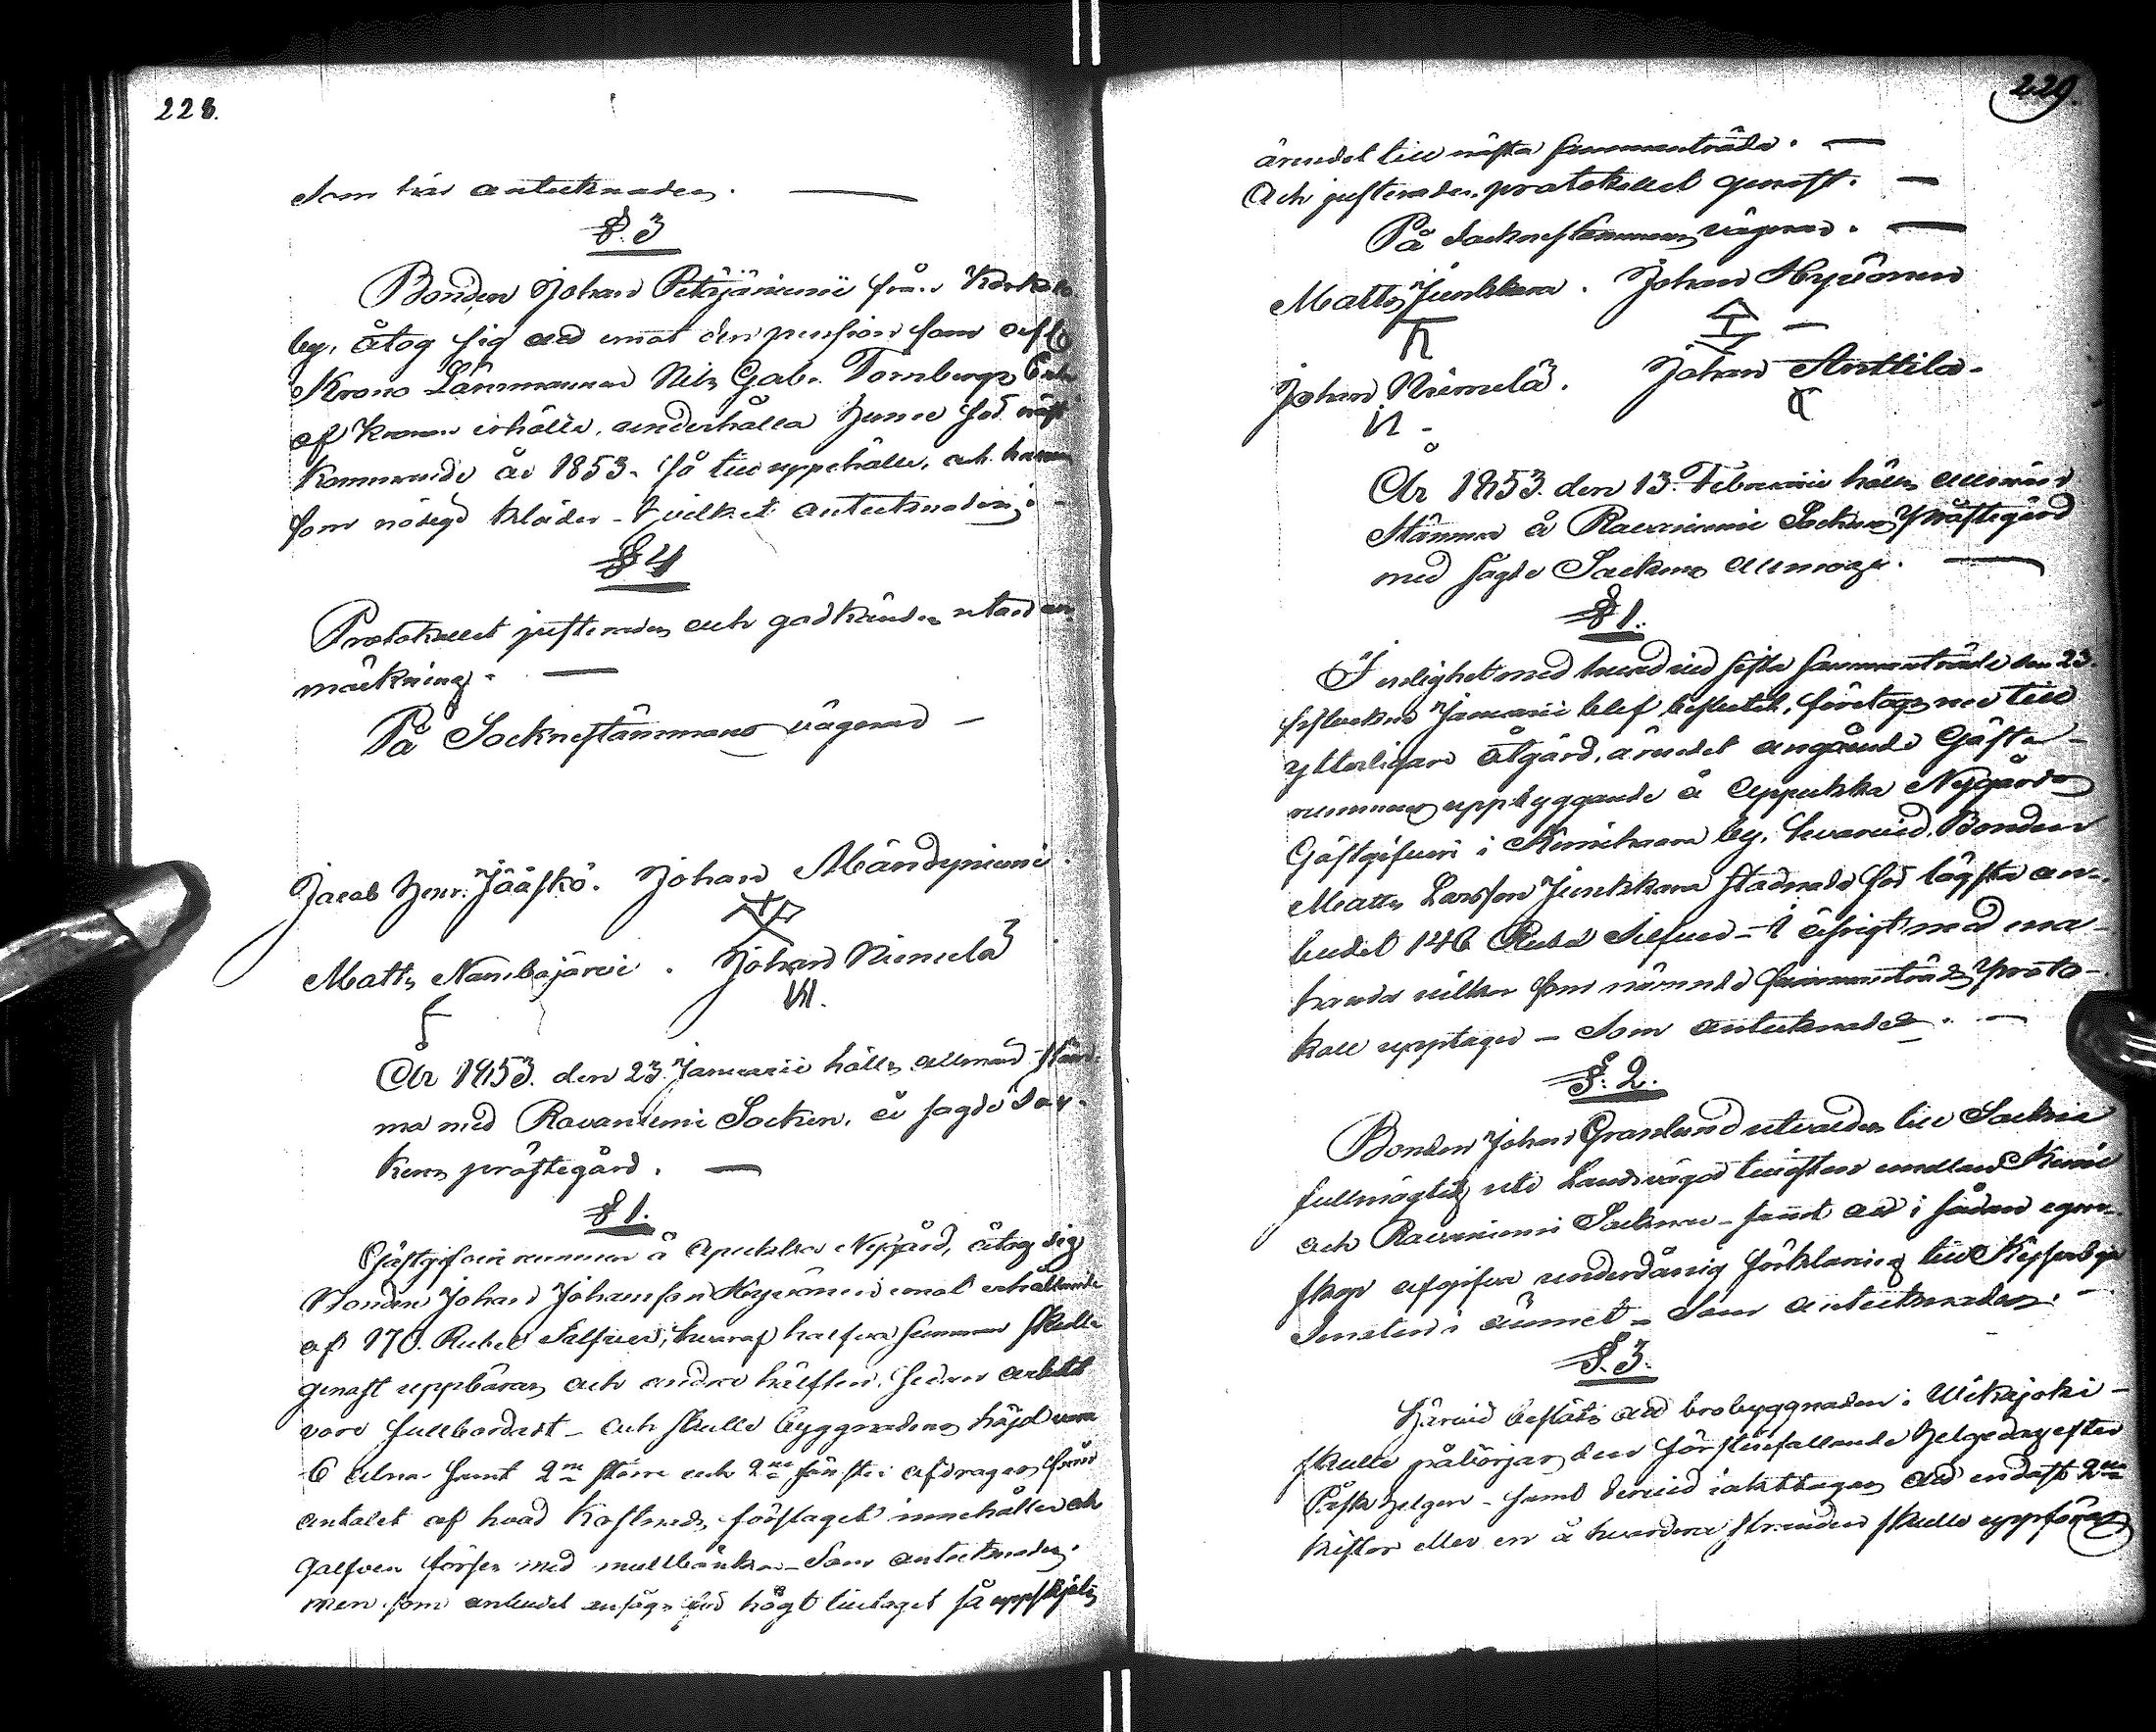 228.
Som här antecknades.
§. 3
Bonden Johan Petäjäniemi från Korkalo
by, åtog sig att emot den pension som afl.
Krono Länsmannen Nils Gabr. Tornbergs Enka
af Kronan erhåller, underhålla henne för näst
kommande år 1853. så till uppehälle, och
som nödige kläder - hvilket antecknades. -
§ 4
Protokollet justerades och godkändes utan an-
märkning. -
På Socknestämmans vägnar -
Jacob Henr. Jääskö. Johan Mändyniemi.
Matts Nambajärvi. Johan Niemelä
År 1853. den 23. Januarii hölls allmän stäm-
ma med Rovaniemi Socken, å sagde Soc-
kens prästegård. -
§ 1.
Gästgifveri rummen å Apukka Nygård, åtog sig
Bonden Johan Johansson Hyvönen emot erhållande
af 170. Rubel Silfver, hvaraf halfva summan skulle
genast uppbäras och andra hälften, sedan arbetet
vore fullbordadt - och skulle byggnadens höjd vara
6 alnar samt 2ne större och 2ne fönster afdragas från
antalet af hvad Kostnads förslaget innehåller och
golfven förses med mullbänkar - Som antecknades.
men som anbudet ansågs för högt tilltaget så uppskjöts
229.
ärendet till nästa sammanträde. -
Och justerades protokollet genast. -
På Socknestämmans vägnar. -
Matts Junkkara. Johan Hyvönen
Johan Niemelä. Johan Anttila.
År 1853. den 13. Februarii hölls allmän
Stämma å Rovaniemi Sockens Prästegård
med sagde Sockens allmoge. -
§ 1.
I enlighet med hvad vid sista sammanträde den 23.
sistledne Januarii blef beslutet, företogs nu till
ytterligare åtgärd, ärendet angående Gäst-
rummens uppbyggande å Apukka Nygårds
Gästgifveri i by, hvarvid Bonden
Matts Larsson Junkkara stadnade för lägsta an-
budet 146 Rubel Silfver - i öfrigt med ena-
handa vilkor som nämnde sammanträdes Proto-
koll upptager - Som antecknades. -
§. 2.
Bonden Johan Granlund utvaldes till Sockne
fullmägtig uti Landsvägs tvisten mellan Kemi
och Rovaniemi Socknar - samt att i sådan egen-
skap afgifva underdånig förklaring till Kejserliga
Senaten i ämnet - Som antecknades. -
§. 3.
Härvid beslöts att brobyggnaden i Wikajoki -
skulle påbörjas den först infallande helgedag efter
Påsk helgen - samt dervid iakttagas att endast 2ne
kistor eller en å hvardera stranden skulle uppföras